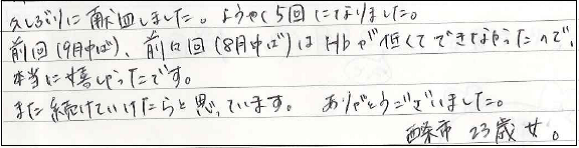 久しぶりに献血しました。ようやく5回になりました。
前回(9月中ば)、前々回(8月中ば)はHbが低くてできなかったので、
本当に嬉しかったです。
また続けていけたらと思っています。ありがとうございました。
西条市 23歳 女。